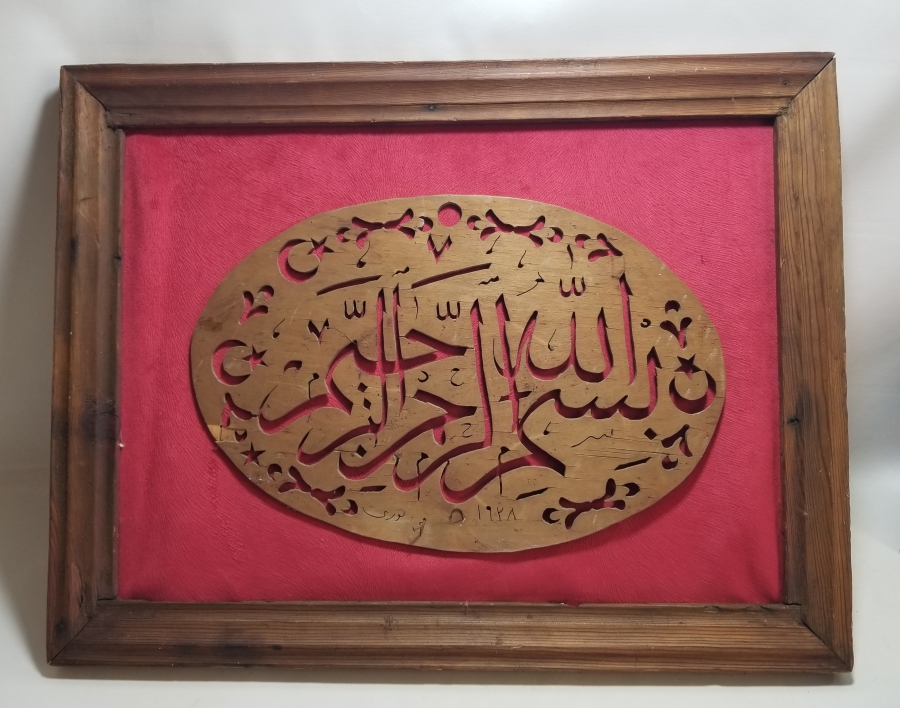 بسم الله الرحمن الرحيم
١٩٢٨